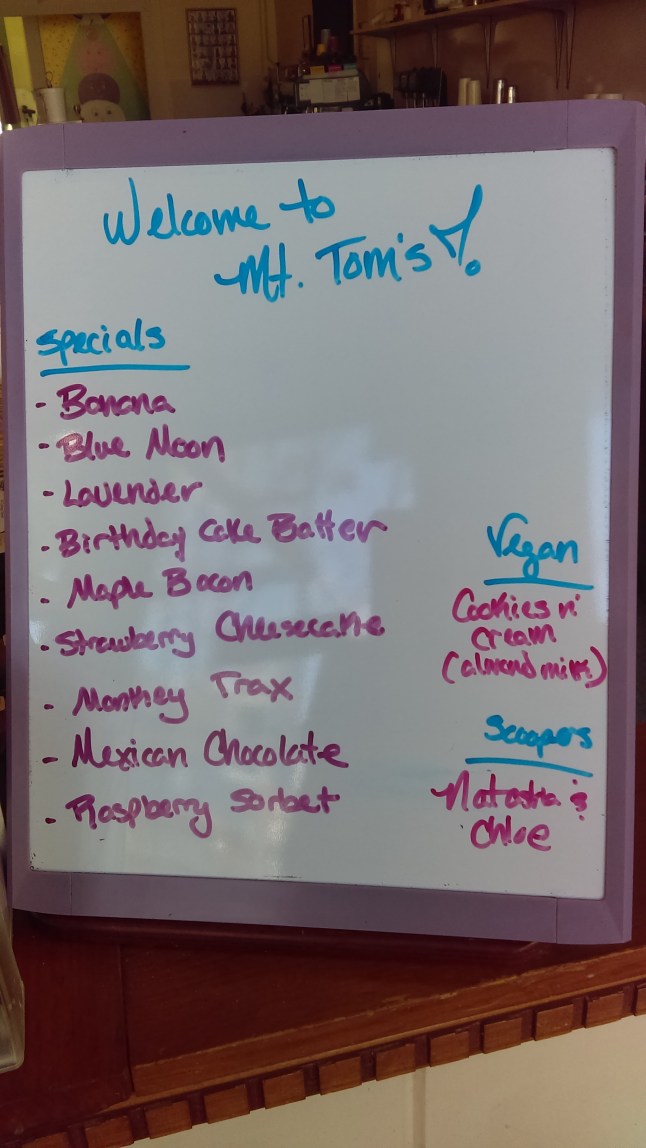 Welcome to
Mt. Tom's!
Specials
- Banana
- Blue Moon
- Lavender
- Birthday Cake Batter
- Maple Bacon
- Strawberry Cheesecake
- Monkey Trax
- Mexican Chocolate
- Raspberry Sorbet
Vegan
Cookies n'
Cream
(almond milk)
Scoopers
Natasha &
Chloe